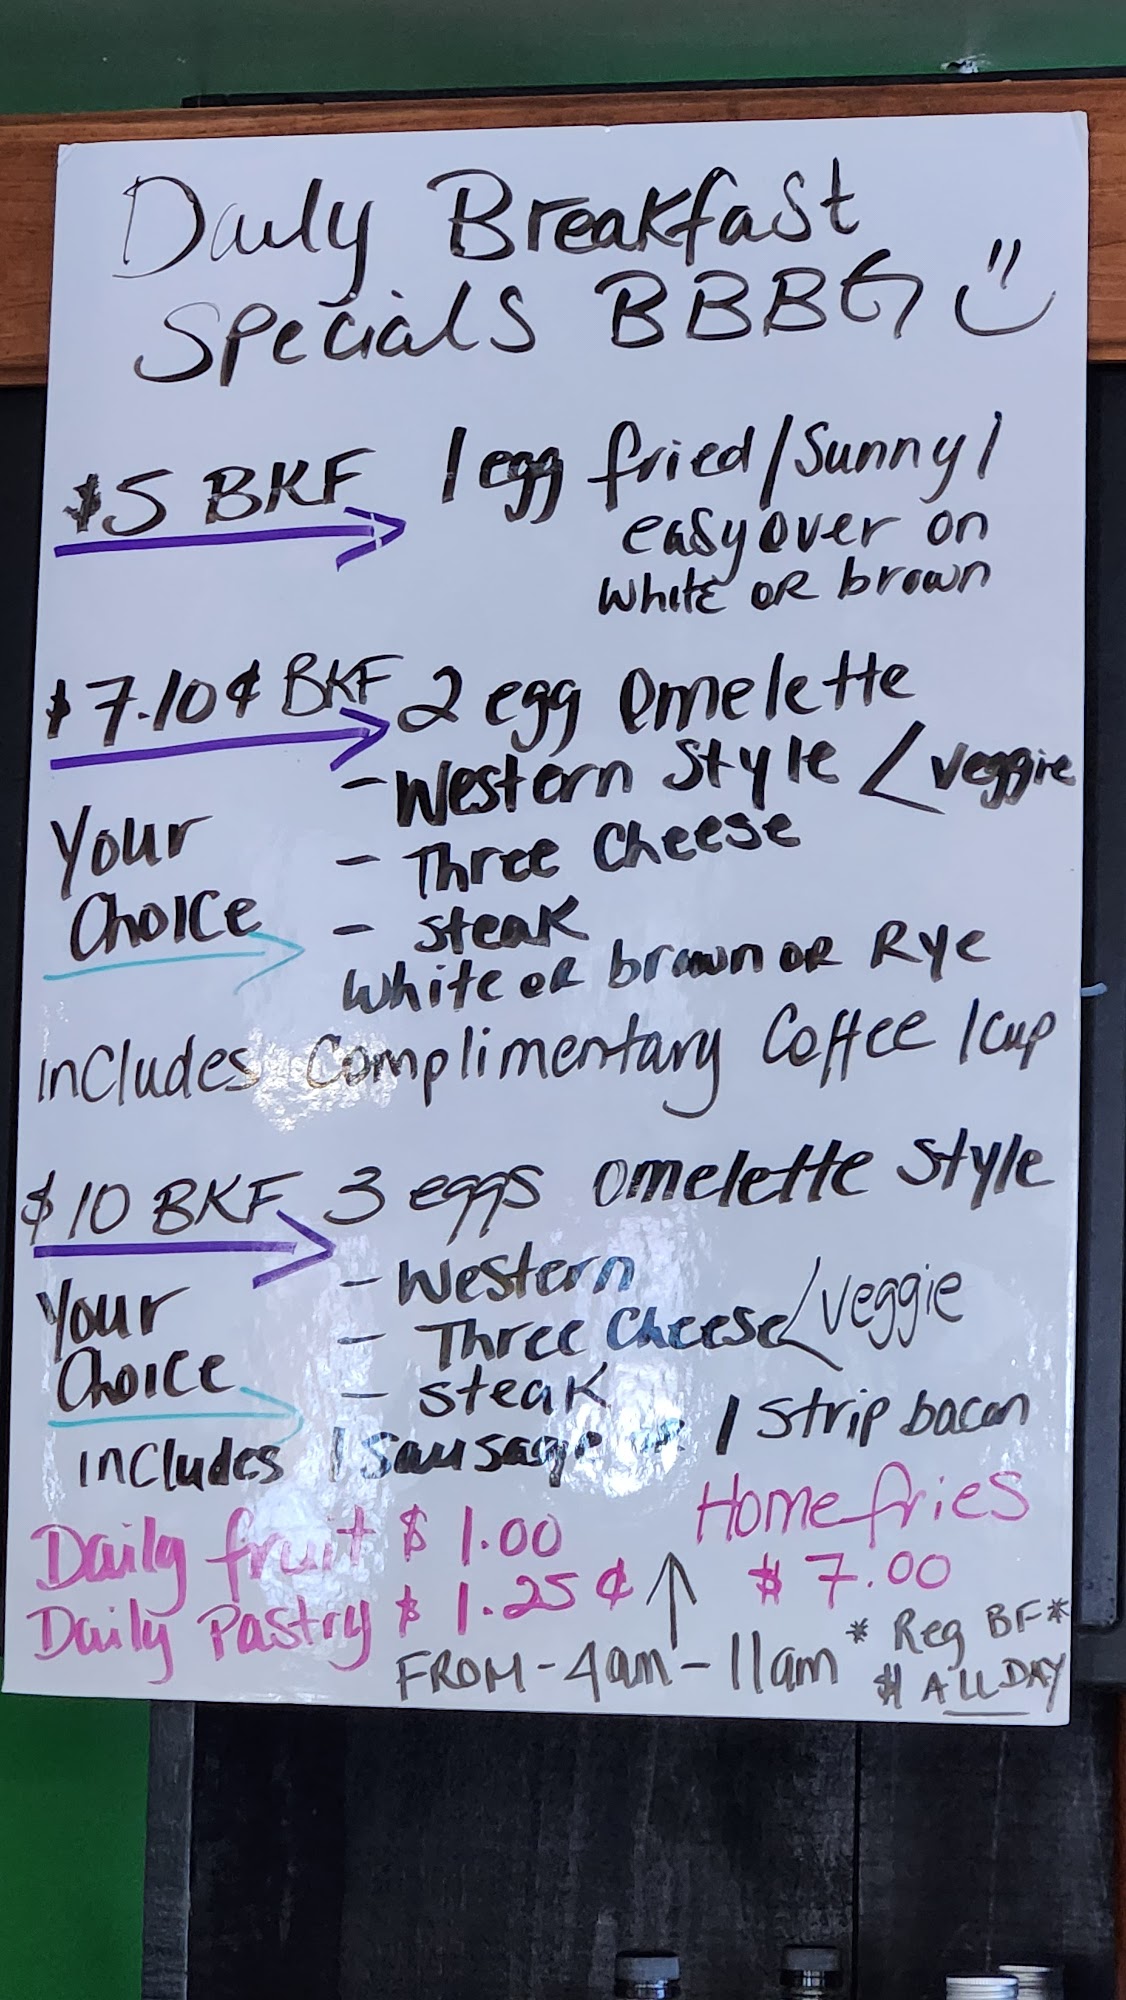 Daily Breakfast
Specials BBBG
$5 BKF 1 egg fried/Sunny/
easy over on
white OR brown
$7.10¢ BKF 2 egg Omelette
- Western Style < veggie
Your - Three Cheese
Choice - steak
White OR brown OR Rye
includes Complimentary Coffee 1cup
$10 BKF 3 eggs omelette style
- Western
Your - Three Cheese < veggie
Choice - steak
includes 1 sausage or 1 strip bacon
Daily fruit $1.00 Homefries
Daily Pastry $1.25¢ $7.00
FROM - 4am - 11am * Reg BF *
ALL DAY